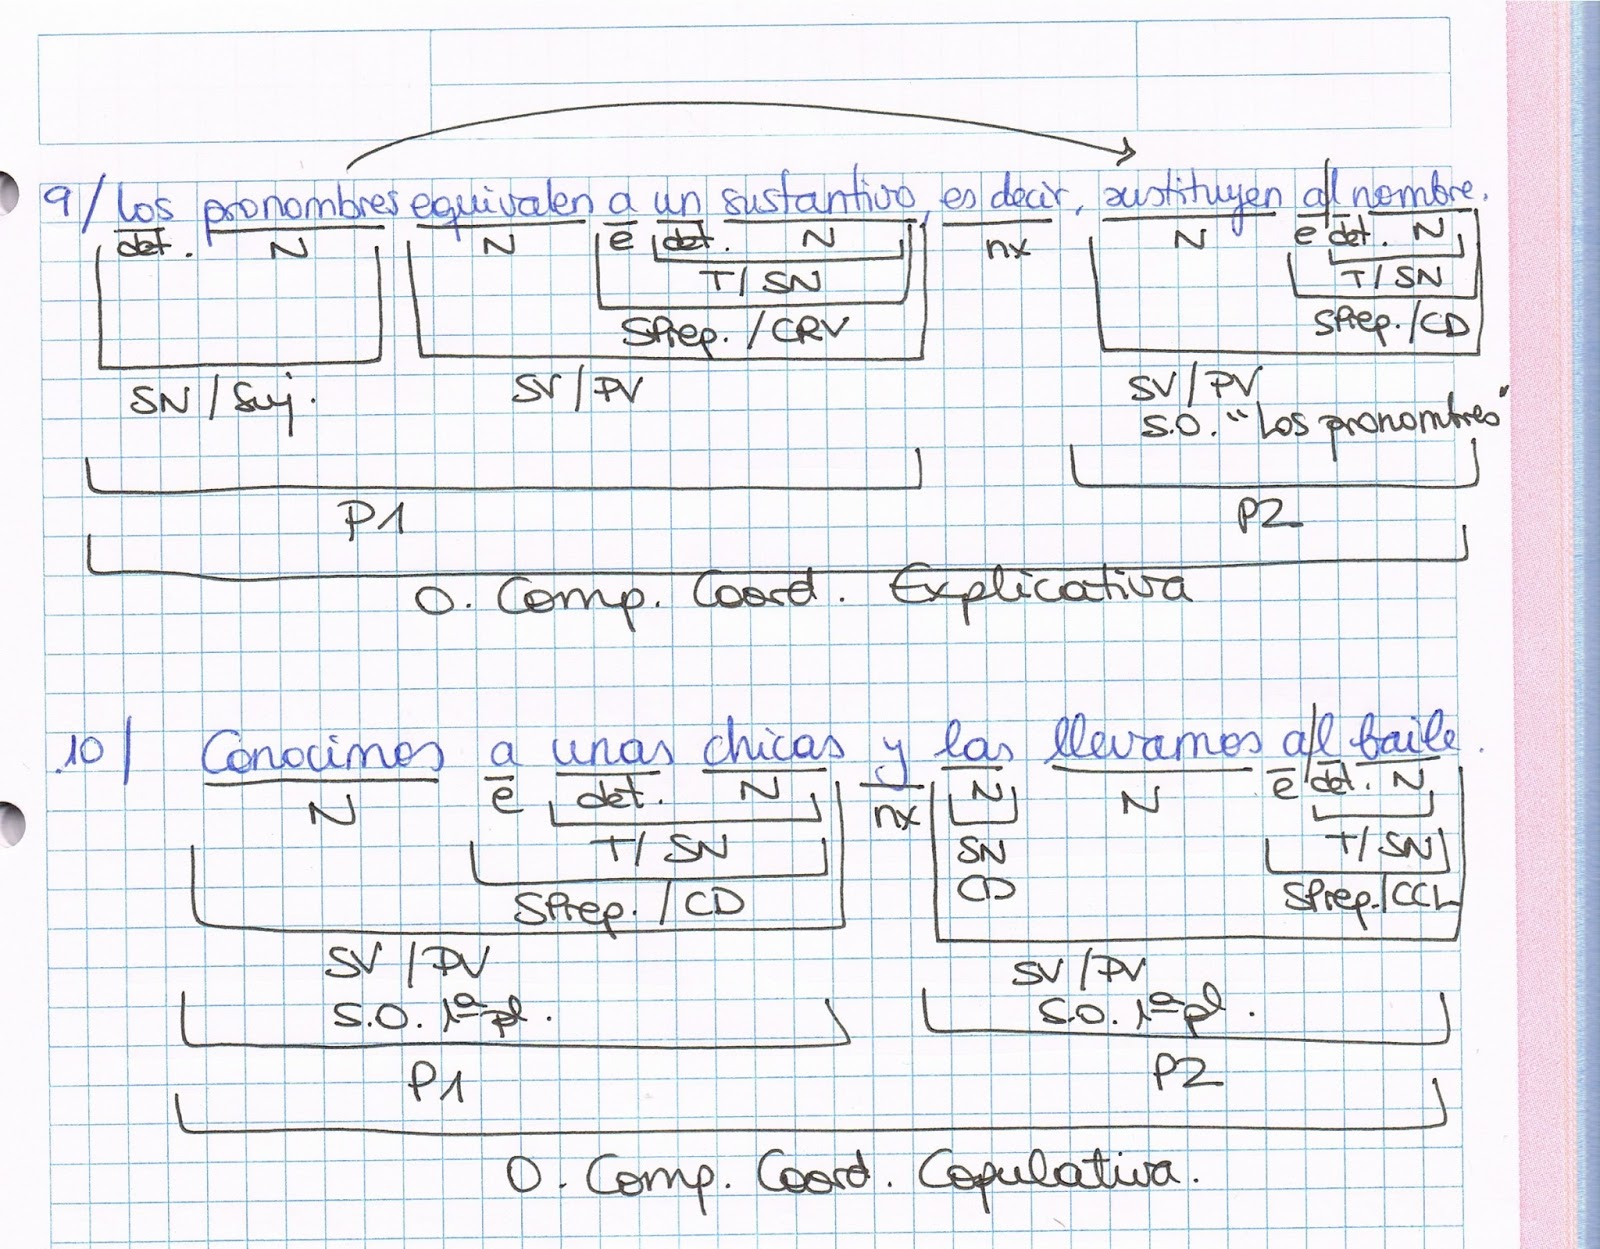 9/ Los pronombres equivalen a un sustantivo, es decir, sustituyen a/l nombre.
det. N N e det. N nx N e det. N
T/SN T/SN
SPrep./CRV SPrep./CD
SN/Suj. SV/PV SV/PV
S.O. "Los pronombres"
P1 P2
O. Comp. Coord. Explicativa
10/ Conocimos a unas chicas y las llevamos a/l baile.
N e det. N nx N N e det. N
T/SN SN T/SN
SPrep./CD CD SPrep./CCL
SV/PV SV/PV
S.O. 1ª pl. S.O. 1ª pl.
P1 P2
O. Comp. Coord. Copulativa.